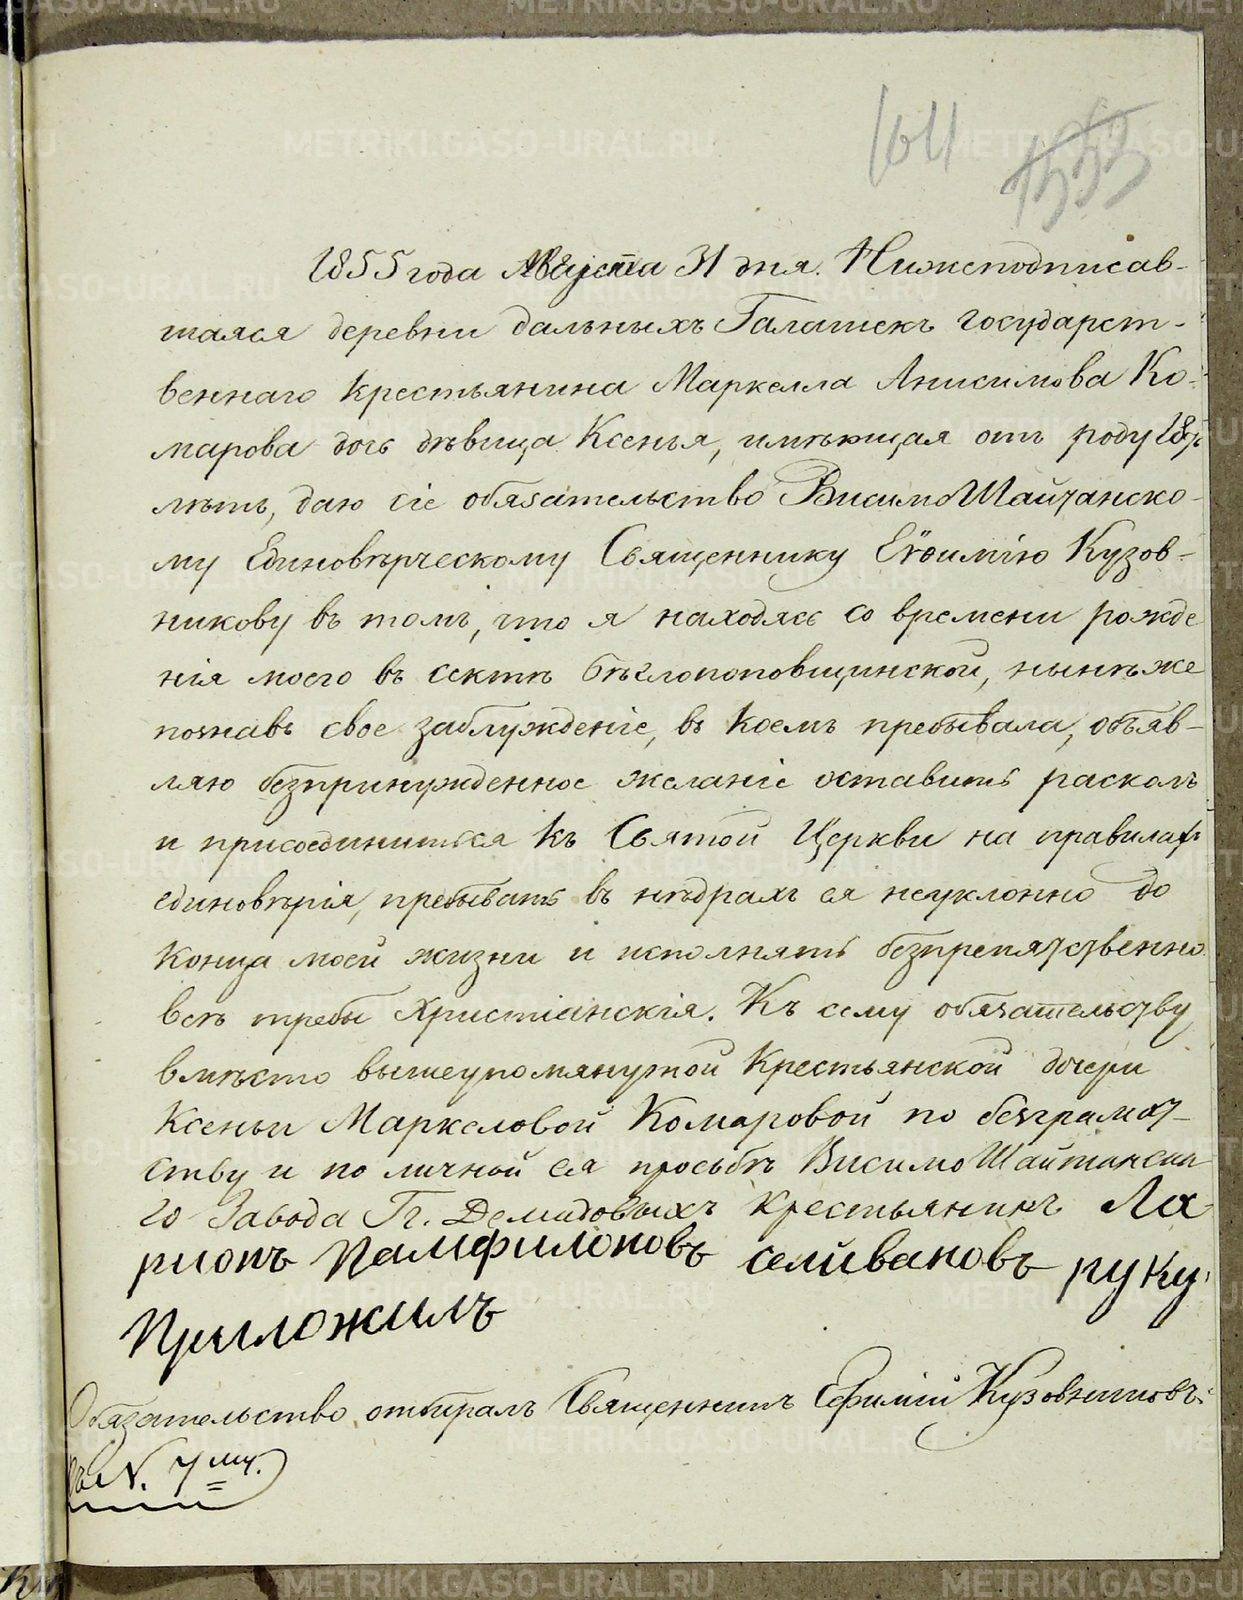 1611
1333
1855 года Августа 31 дня. Нижеподписав-
шаяся деревни дальныхъ Галашекъ государст-
веннаго крестьянина Маркелла Анисимова Ко-
марова дочь дѣвица Ксенья, имѣющая отъ роду 18ть
лѣтъ, даю сіе обязательство ВисимоШайтанско-
му Единовѣрческому Священнику Евѳимію Кузов-
никову въ томъ, что я находясь со времени рожде
нія моего въ сектѣ бѣглопоповщинской, нынѣже
познавъ свое заблужденіе, въ коемъ пребывала, объяв-
ляю безпринужденное желаніе оставить расколъ
и присоединиться къ Святой Церкви на правилахъ
единовѣрія, пребывать въ нѣдрахъ ея неуклонно до
конца моей жизни и исполнять безпрепятственно
всѣ требы Христіанскія. Къ сему обязательству
вмѣсто вышеупомянутой крестьянской дочери
Ксеньи Маркеловой Комаровой по безграмот-
ству и по личной ея просьбѣ ВисимоШайтанска
го Завода Гг. Демидовыхъ крестьянинъ Ла
рионъ Памфилоновъ селивановъ руку
Приложилъ
Обязательство отбиралъ Священникъ Ефимій Кузовниковъ.
N. 7му.
METRIKI.GASO-URAL.RU